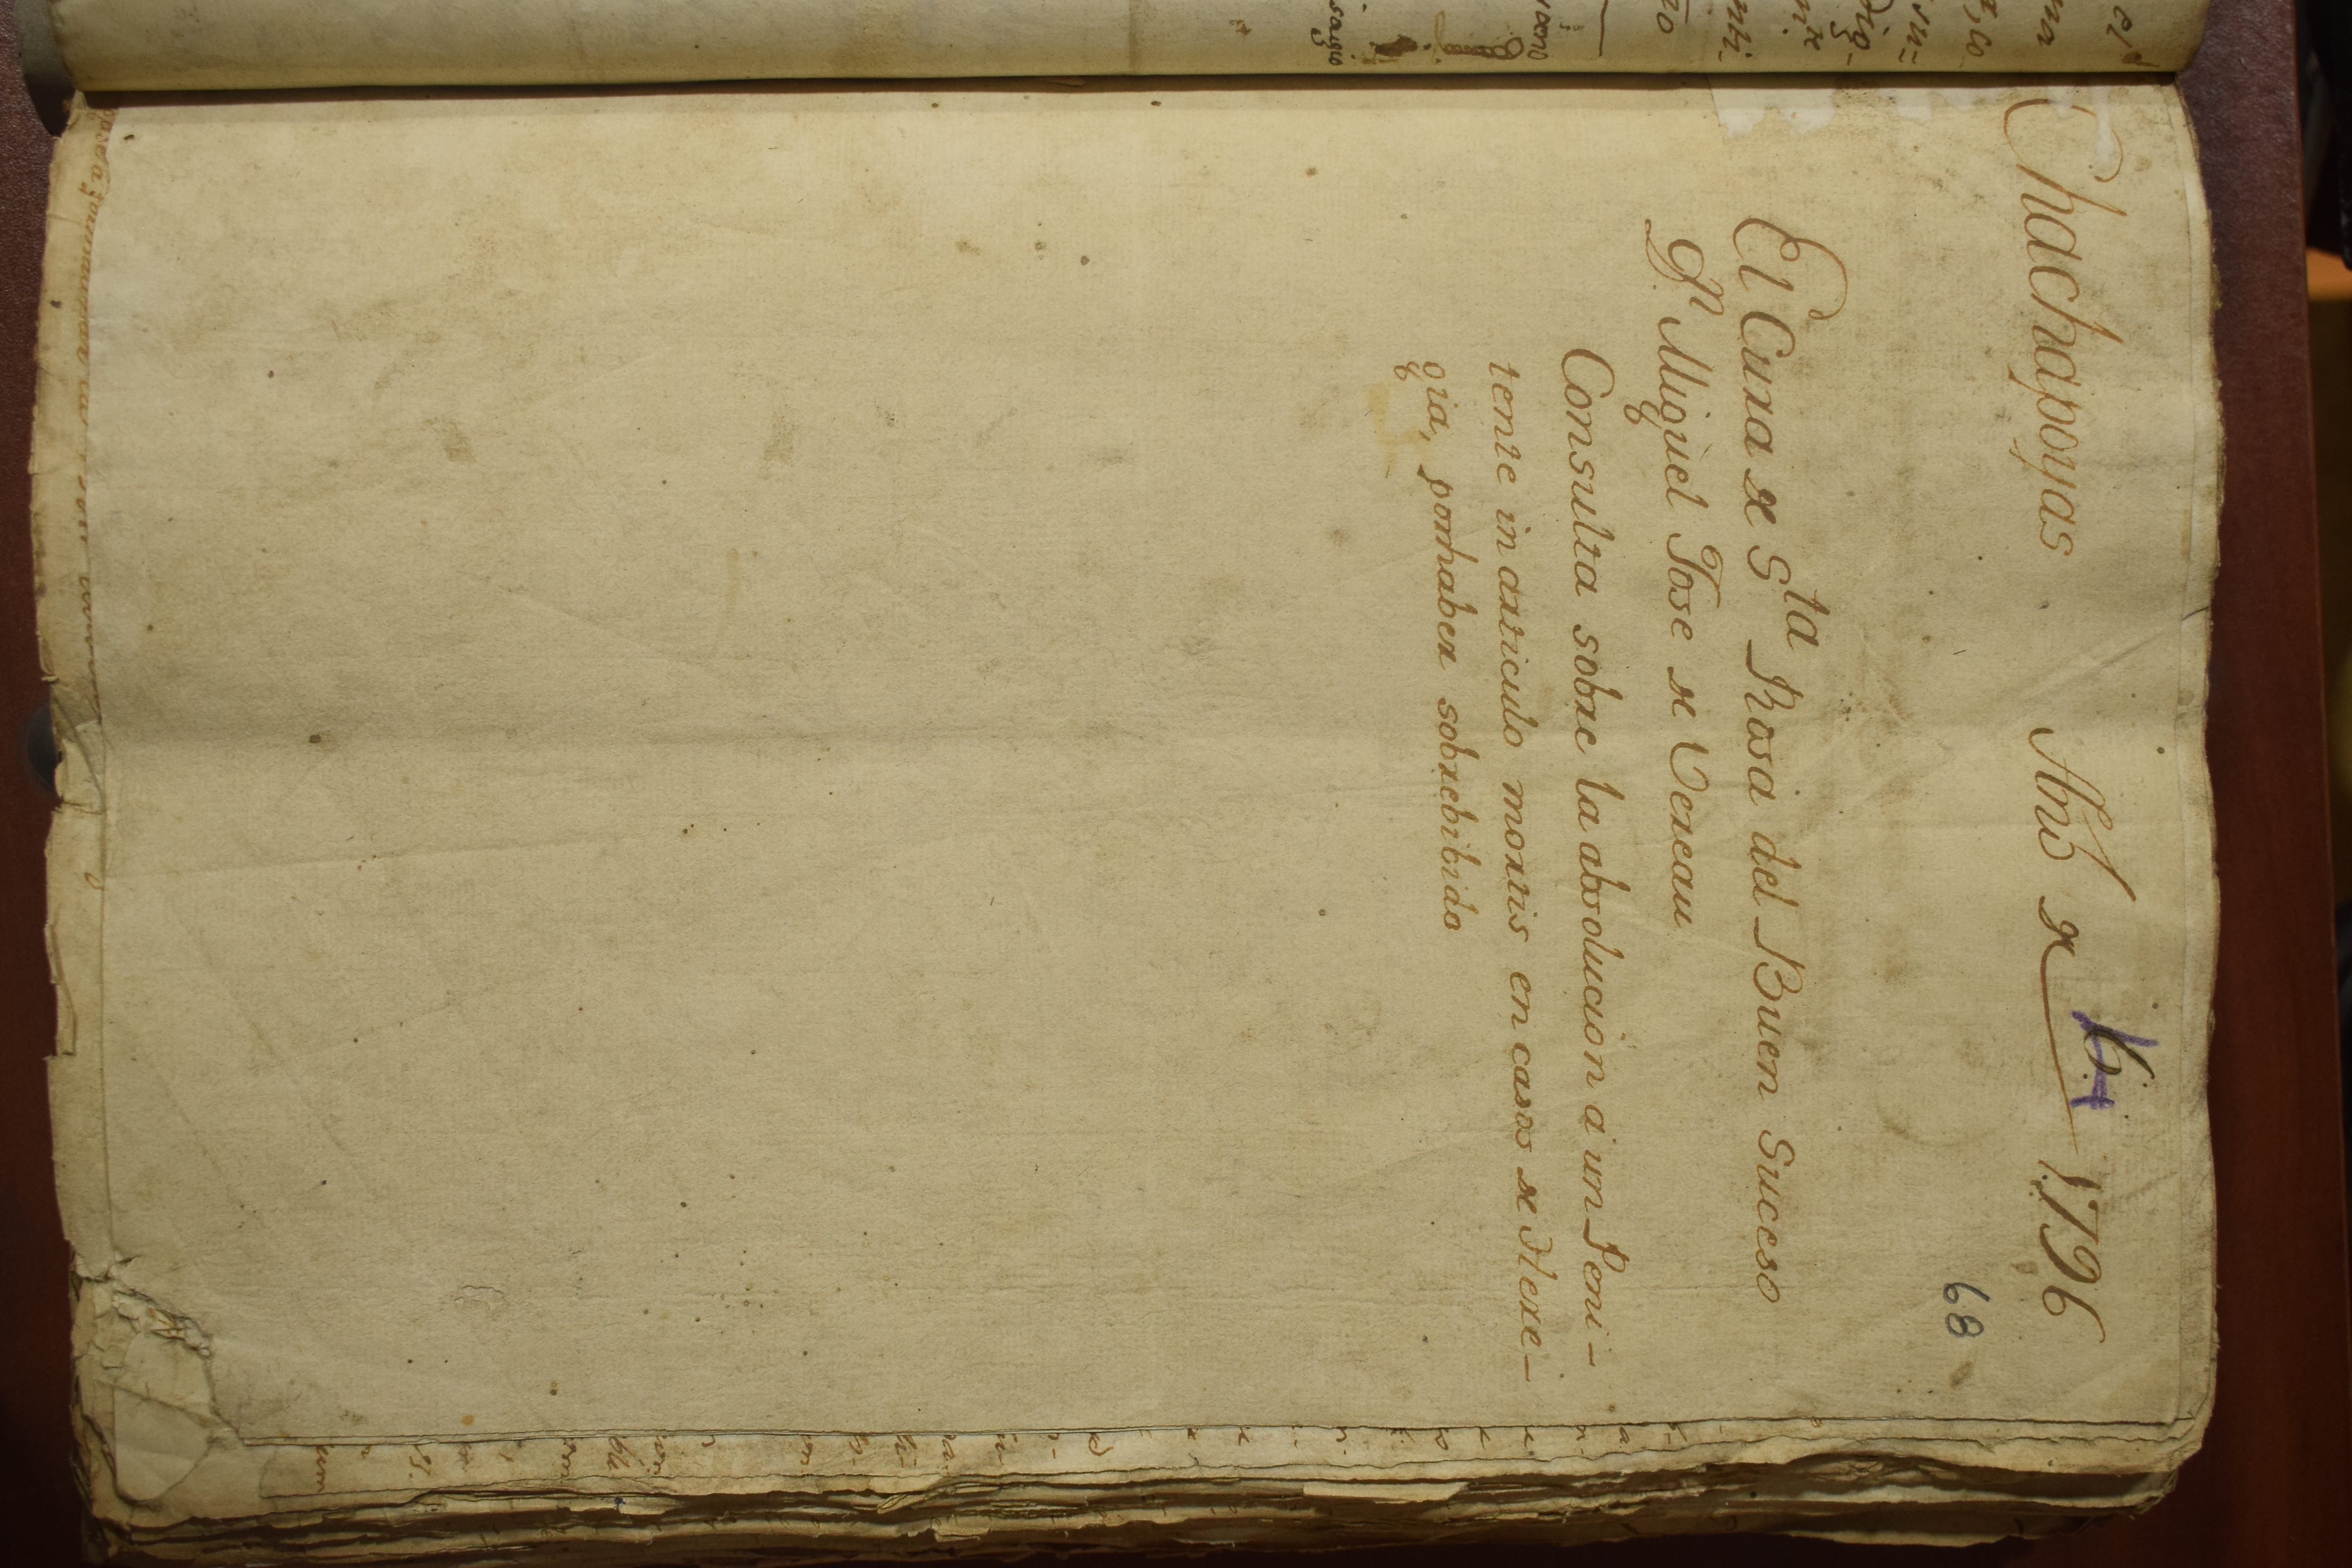 Chachapoyas Año de 1796
68
El Cura de Sta Rosa del Buen Suceso
Dn Miguel Jose de Vereau
Consulta sobre la absolucion a un Peni-
tente in articulo mortis en casos de Here-
gia, por haber sobrebibido